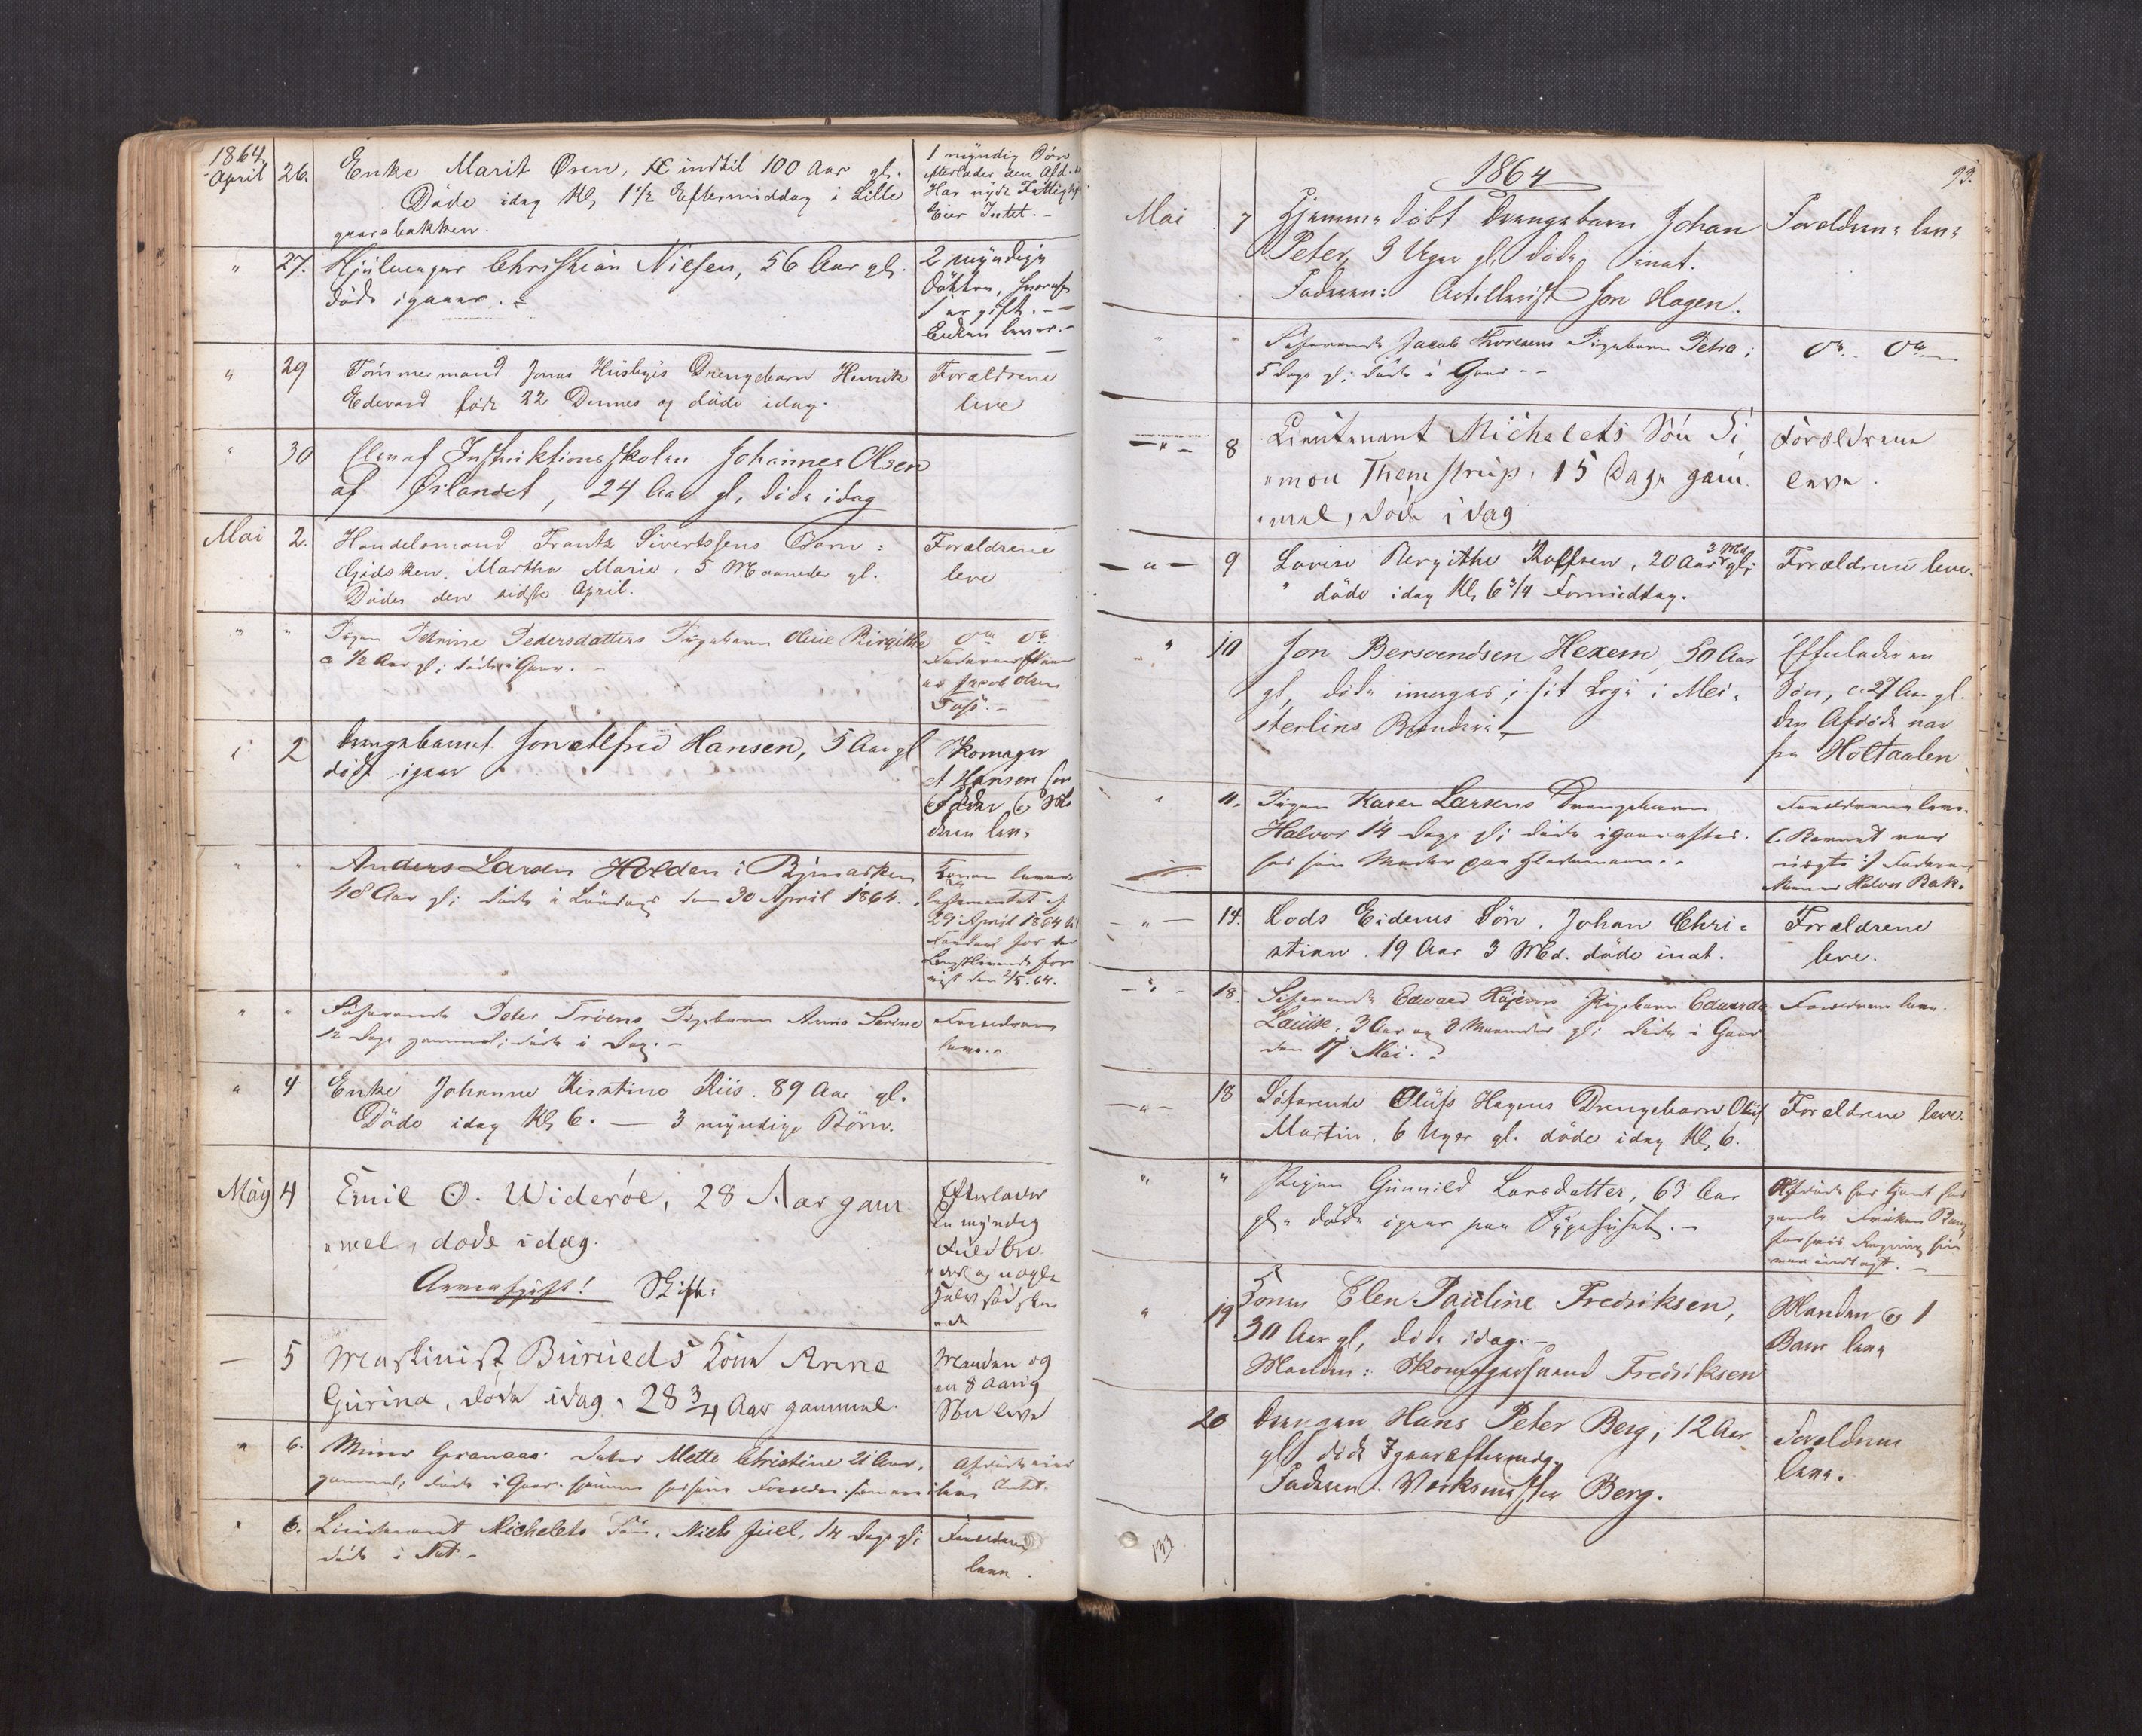 1864.
April 26. Enke Marit Øren, indtil 100 Aar gl.
Döde idag Kl. 1 1/2 Eftermiddag i Lille
gaardsbakken.
1 myndig Sön
efterlader den Afd.
Har nydt Fattig
Eier Intet. -
" 27. Hjulmager Christian Nielsen, 56 Aar gl.
döde igaar. -
2 myndige
Döttre, hvoraf
1 er gift. -
Enken lever. -
" 29 Tömmermand Jonas Husbyes Drengebarn Henrik
Edevard föd 22 Dennes og döde idag.
Forældrene
leve
" 30 Elev af Instruktionsskolen Johannes Olsen
af Örlandet, 24 Aar gl, döde idag
Mai 2. Handelsmand Frantz Sivertsens Barn:
Gidsken Martha Marie, 5 Maaneder gl.
Döde den sidste April.
Forældrene
leve
" " Pigen Petrine Pedersdatters Pigebarn Oline Birgitte
a 1/2 Aar gl; döde i Gaar. -
Do Do
Jacob Olsen
2 Drengebarnet Jon Alfred Hansen, 5 Aar gl
döde igaar
Skomager
A Hansen
Fader & Mo
deren leve
" " Anders Larsen Holden i Bymarken
48 Aar gl; döde i Löverdags den 30 April 1864.
Konen lever
Testamentet af
29 April 1864
den 2/5. 64.
" " Söfarende Peter Tröens Pigebarn Anna Serine
12 Dage gammel; döde i Dag. -
Forældrene
leve. -
" 4 Enke Johanne Kirstine Riis. 89 Aar gl.
Döde idag Kl, 6. — 3 myndige Börn.
May 4 Emil O. Wideröe, 28 Aar gam
mel, döde idag.
Skifte
Efterlader
en myndig
og nogle
Halvsödsken
— 5 Maskinist Burueds Kone Anne
Gurina, döde idag, 28 3/4 Aar gammel.
Manden og
en 8 aarig
Sön leve
" 6. Murer Granaas Datter Mette Christine 21 Aar
gammel, döde i Gaar hjemme hos sine Forældre
Afdöde eier
Intet.
" 6. Lieutenant Michelets Sön, Niels Juel, 14 Dage gl;
döde i Nat -
Forældrene
leve.
1864
93.
Mai 7 Hjemmedöbt Drengebarn Johan
Peter, 3 Uger gl, döde inat.
Faderen: Artillerist Jon Hagen.
Forældrene leve
" Söfarende Jacob Thoresens Pigebarn Petra;
5 Dage gl; döde i Gaar --
Do — Do —
— " — 8 Lieutenant Michelets Sön Si
mon Themstrup, 15 Dage gam
mel, döde i dag
Forældrene
leve.
— " — 9 Lovise Bergithe Roffsen, 20 Aar 3 Md. gl;
döde idag Kl, 6 3/4 Formiddag.
Forældrene leve.
" 10 Jon Bersvendsen Hexem, 50 Aar
gl, döde imorges i sit Logi i Mei
sterlins Brænderi. —
Efterlader en
Sön, c. 27 Aar gl.
den Afdöde var
fra Holtaalen
" 11. Pigen Karen Larsens Drengebarn
Halvor 14 Dage gl; döde igaaraftes.
hos sin Moder paa
Forældrene leve.
Barnet var
uægte
Halvor Bak.
— " — 14. Lods Eidems Sön. Johan Chri
stian. 19 Aar 3 Md. döde inat.
Forældrene
leve.
— " — 18. Söfarende Edward Hagens Pigebarn Edvarda
Lauise. 3 Aar og 3 Maaneder gl; döde i Gaar
den 17 Mai. -
Forældrene leve.
— " — 18 Söfarende Olufs Hagens Drengebarn Oluf
Martin. 6 Uger gl. döde idag Kl, 6.
Forældrene leve.
" " Pigen Gunnild Larsdatter, 63 Aar
gl. döde igaar paa Sygehuset. -
Afdöde har tjent hos
gamle Fröken
" 19 Konen Elen Pauline Fredriksen,
30 Aar gl, döde idag. -
Manden: Skomagersvend Fredriksen
Manden & 1
Barn leve
20 Drengen Hans Peter Berg, 12 Aar
gl, döde Igaareftermdg.
Faderen: Værksmester Berg.
Forældrene
leve.
133